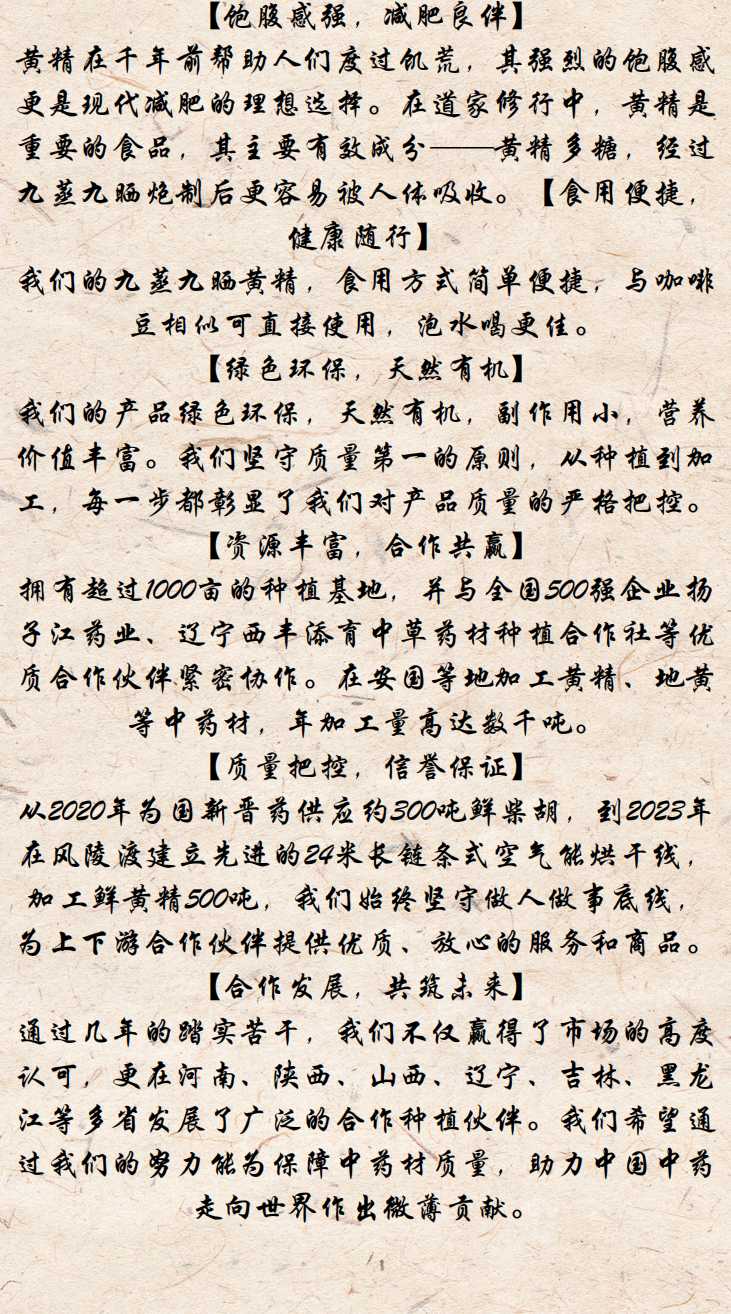 【饱腹感强，减肥良伴】
黄精在千年前帮助人们度过饥荒，其强烈的饱腹感
更是现代减肥的理想选择。在道家修行中，黄精是
重要的食品，其主要有效成分——黄精多糖，经过
九蒸九晒炮制后更容易被人体吸收。【食用便捷，
健康随行】
我们的九蒸九晒黄精，食用方式简单便捷，与咖啡
豆相似可直接使用，泡水喝更佳。
【绿色环保，天然有机】
我们的产品绿色环保，天然有机，副作用小，营养
价值丰富。我们坚守质量第一的原则，从种植到加
工，每一步都彰显了我们对产品质量的严格把控。
【资源丰富，合作共赢】
拥有超过1000亩的种植基地，并与全国500强企业扬
子江药业、辽宁西丰添育中草药材种植合作社等优
质合作伙伴紧密协作。在安国等地加工黄精、地黄
等中药材，年加工量高达数千吨。
【质量把控，信誉保证】
从2020年为国新晋药供应约300吨鲜柴胡，到2023年
在风陵渡建立先进的24米长链条式空气能烘干线，
加工鲜黄精500吨，我们始终坚守做人做事底线，
为上下游合作伙伴提供优质、放心的服务和商品。
【合作发展，共筑未来】
通过几年的踏实苦干，我们不仅赢得了市场的高度
认可，更在河南、陕西、山西、辽宁、吉林、黑龙
江等多省发展了广泛的合作种植伙伴。我们希望通
过我们的努力能为保障中药材质量，助力中国中药
走向世界作出微薄贡献。